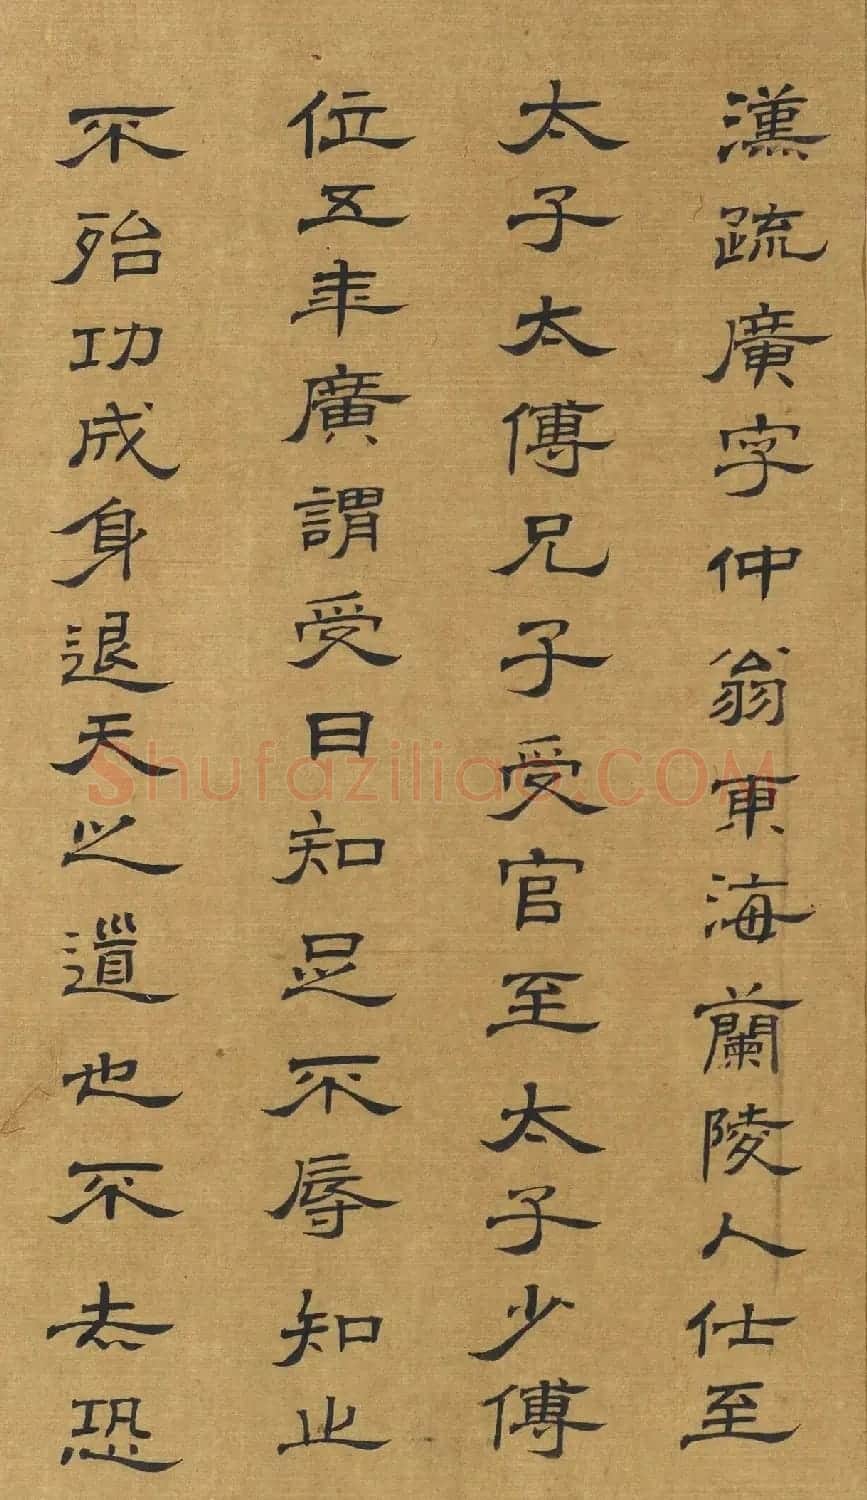 漢疏廣字仲翁東海蘭陵人仕至
太子太傅兄子受官至太子少傅
位五年廣謂受曰知足不辱知止
不殆功成身退天之道也不去恐
Shufaziliao.COM